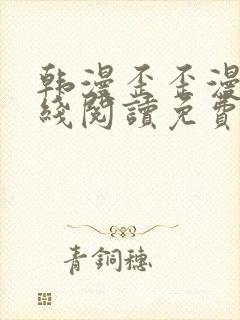 韩漫歪歪漫
綫閱讀免費
青銅穗